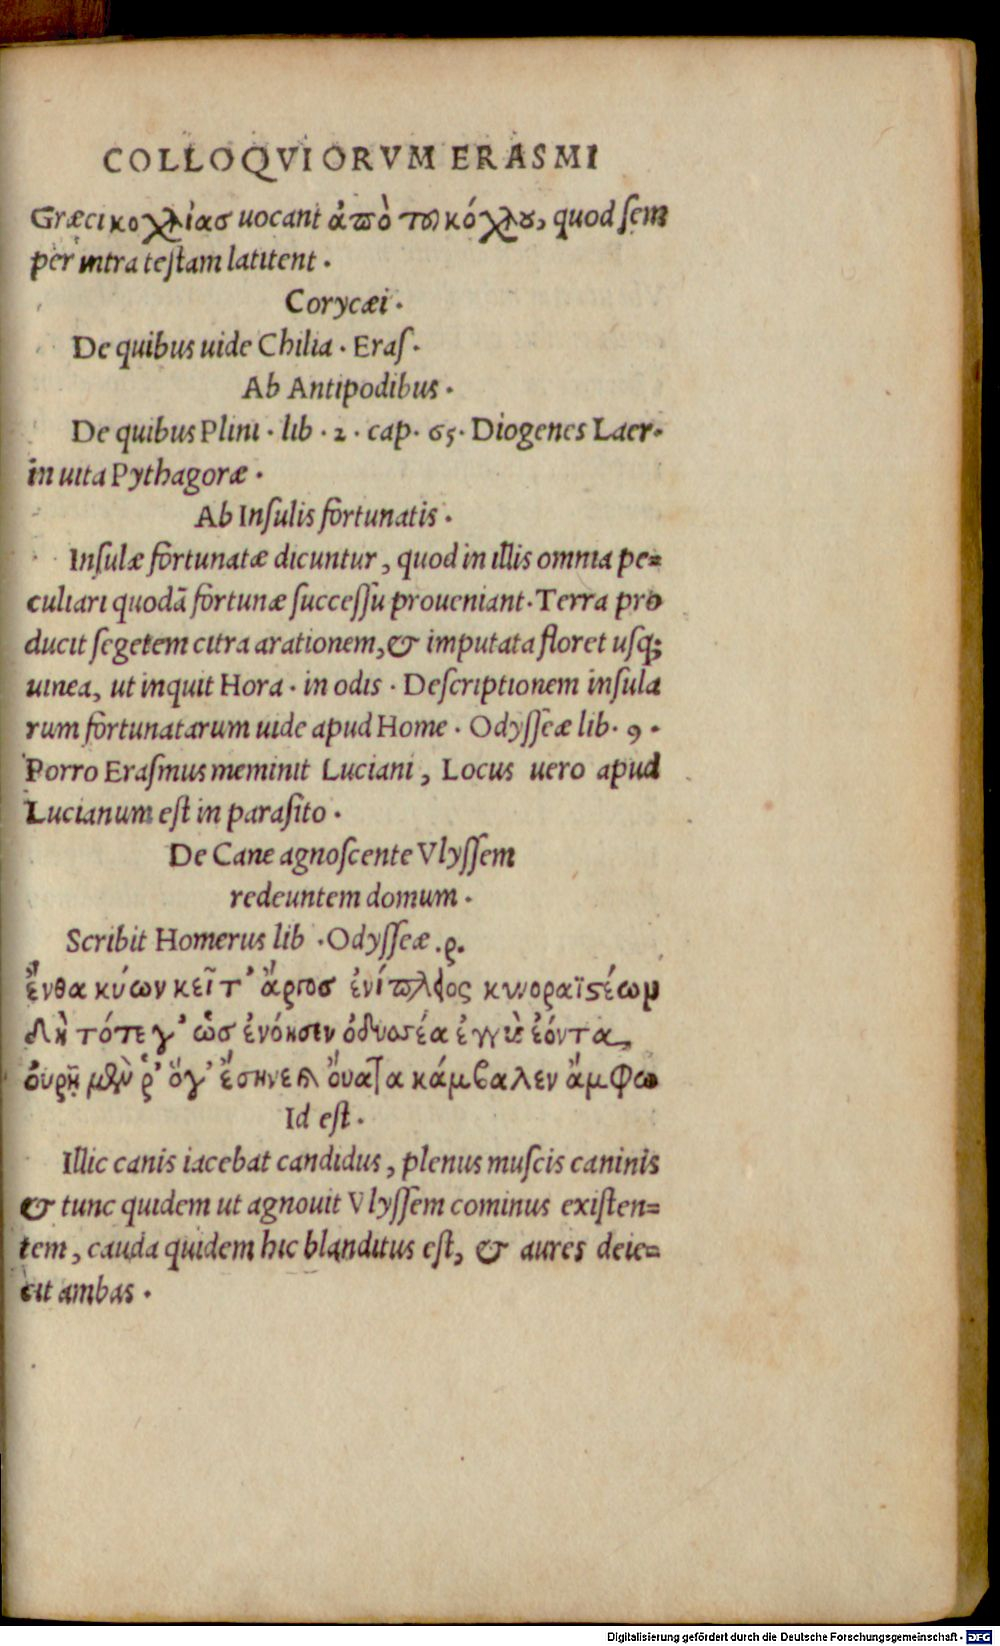 COLLOQVIORVM ERASMI
Græci κοχλίασ uocant ἀπὸ τοῦ κόχλου, quod ſem
per intra teſtam latitent .
Corycæi .
De quibus uide Chilia . Eraſ .
Ab Antipodibus .
De quibus Plini . lib . 2 . cap . 65 . Diogenes Laer.
in uita Pythagoræ .
Ab Inſulis fortunatis .
Inſulæ fortunatæ dicuntur , quod in illis omnia pe=
culiari quodã fortunæ ſucceſſu proueniant . Terra pro
ducit ſegetem citra arationem, & imputata floret uſq;
uinea, ut inquit Hora . in odis . Deſcriptionem inſula
rum fortunatarum uide apud Home . Odyſſeæ lib . 9 .
Porro Eraſmus meminit Luciani , Locus uero apud
Lucianum eſt in paraſito .
De Cane agnoſcente Vlyſſem
redeuntem domum .
Scribit Homerus lib . Odyſſeæ . ρ .
ἔνθα κύων κεῖτ' ἄργοσ ἐνίπλειος κυνοραϊστέωμ
δὴ τότε γ' ὡσ ἐνόησιν ὀδυσσέα ἐγγὺς ἐόντα,
ὀυρῇ μὲν ῥ' ὅγ' ἔσηνε καὶ ὄυατα κάμβαλεν ἄμφω
Id eſt .
Illic canis iacebat candidus , plenus muſcis caninis
& tunc quidem ut agnouit Vlyſſem cominus exiſten=
tem , cauda quidem hic blanditus eſt, & aures deie=
cit ambas .
Digitalisierung gefördert durch die Deutsche Forschungsgemeinschaft - DFG